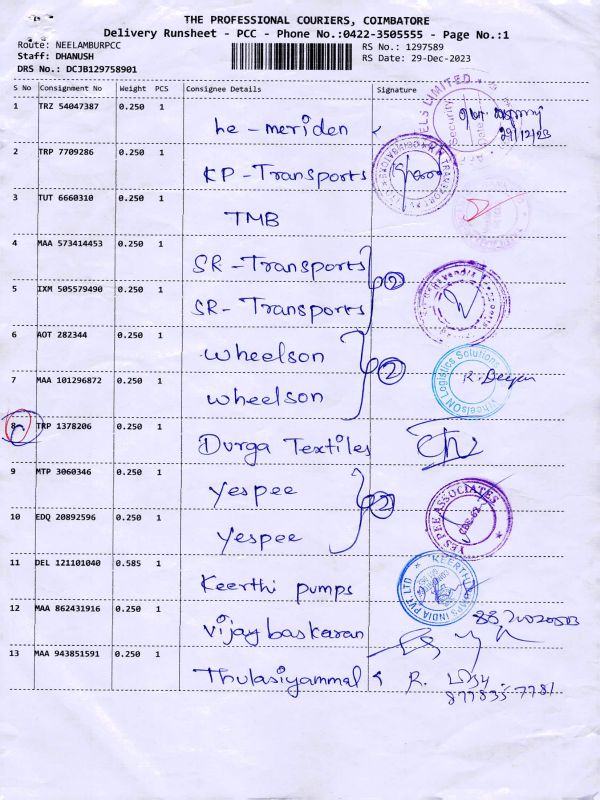 THE PROFESSIONAL COURIERS, COIMBATORE
Delivery Runsheet - PCC - Phone No.:0422-3505555 - Page No.:1
Route: NEELAMBURPCC
RS No.: 1297589
Staff: DHANUSH
RS Date: 29-Dec-2023
DRS No.: DCJB129758901
S No Consignment No Weight PCS Consignee Details Signature
1 TRZ 54047387 0.250 1 he-meriden
29/12/23
2 TRP 7709286 0.250 1 KP-Transports
3 TUT 6660310 0.250 1 TMB
4 MAA 573414453 0.250 1 SR-Transports
2
5 IXM 505579490 0.250 1 SR-Transports
6 AOT 282344 0.250 1 Wheelson
2
7 MAA 101296872 0.250 1 Wheelson
WheelsON Logistics Solutions
8 TRP 1378206 0.250 1 Durga Textiles
9 MTP 3060346 0.250 1 Yespee
2
YESPEE ASSOCIATES
10 EDQ 20892596 0.250 1 Yespee
11 DEL 121101040 0.585 1 Keerthi pumps
12 MAA 862431916 0.250 1 Vijaybaskaran
13 MAA 943851591 0.250 1 Thulasiyammal